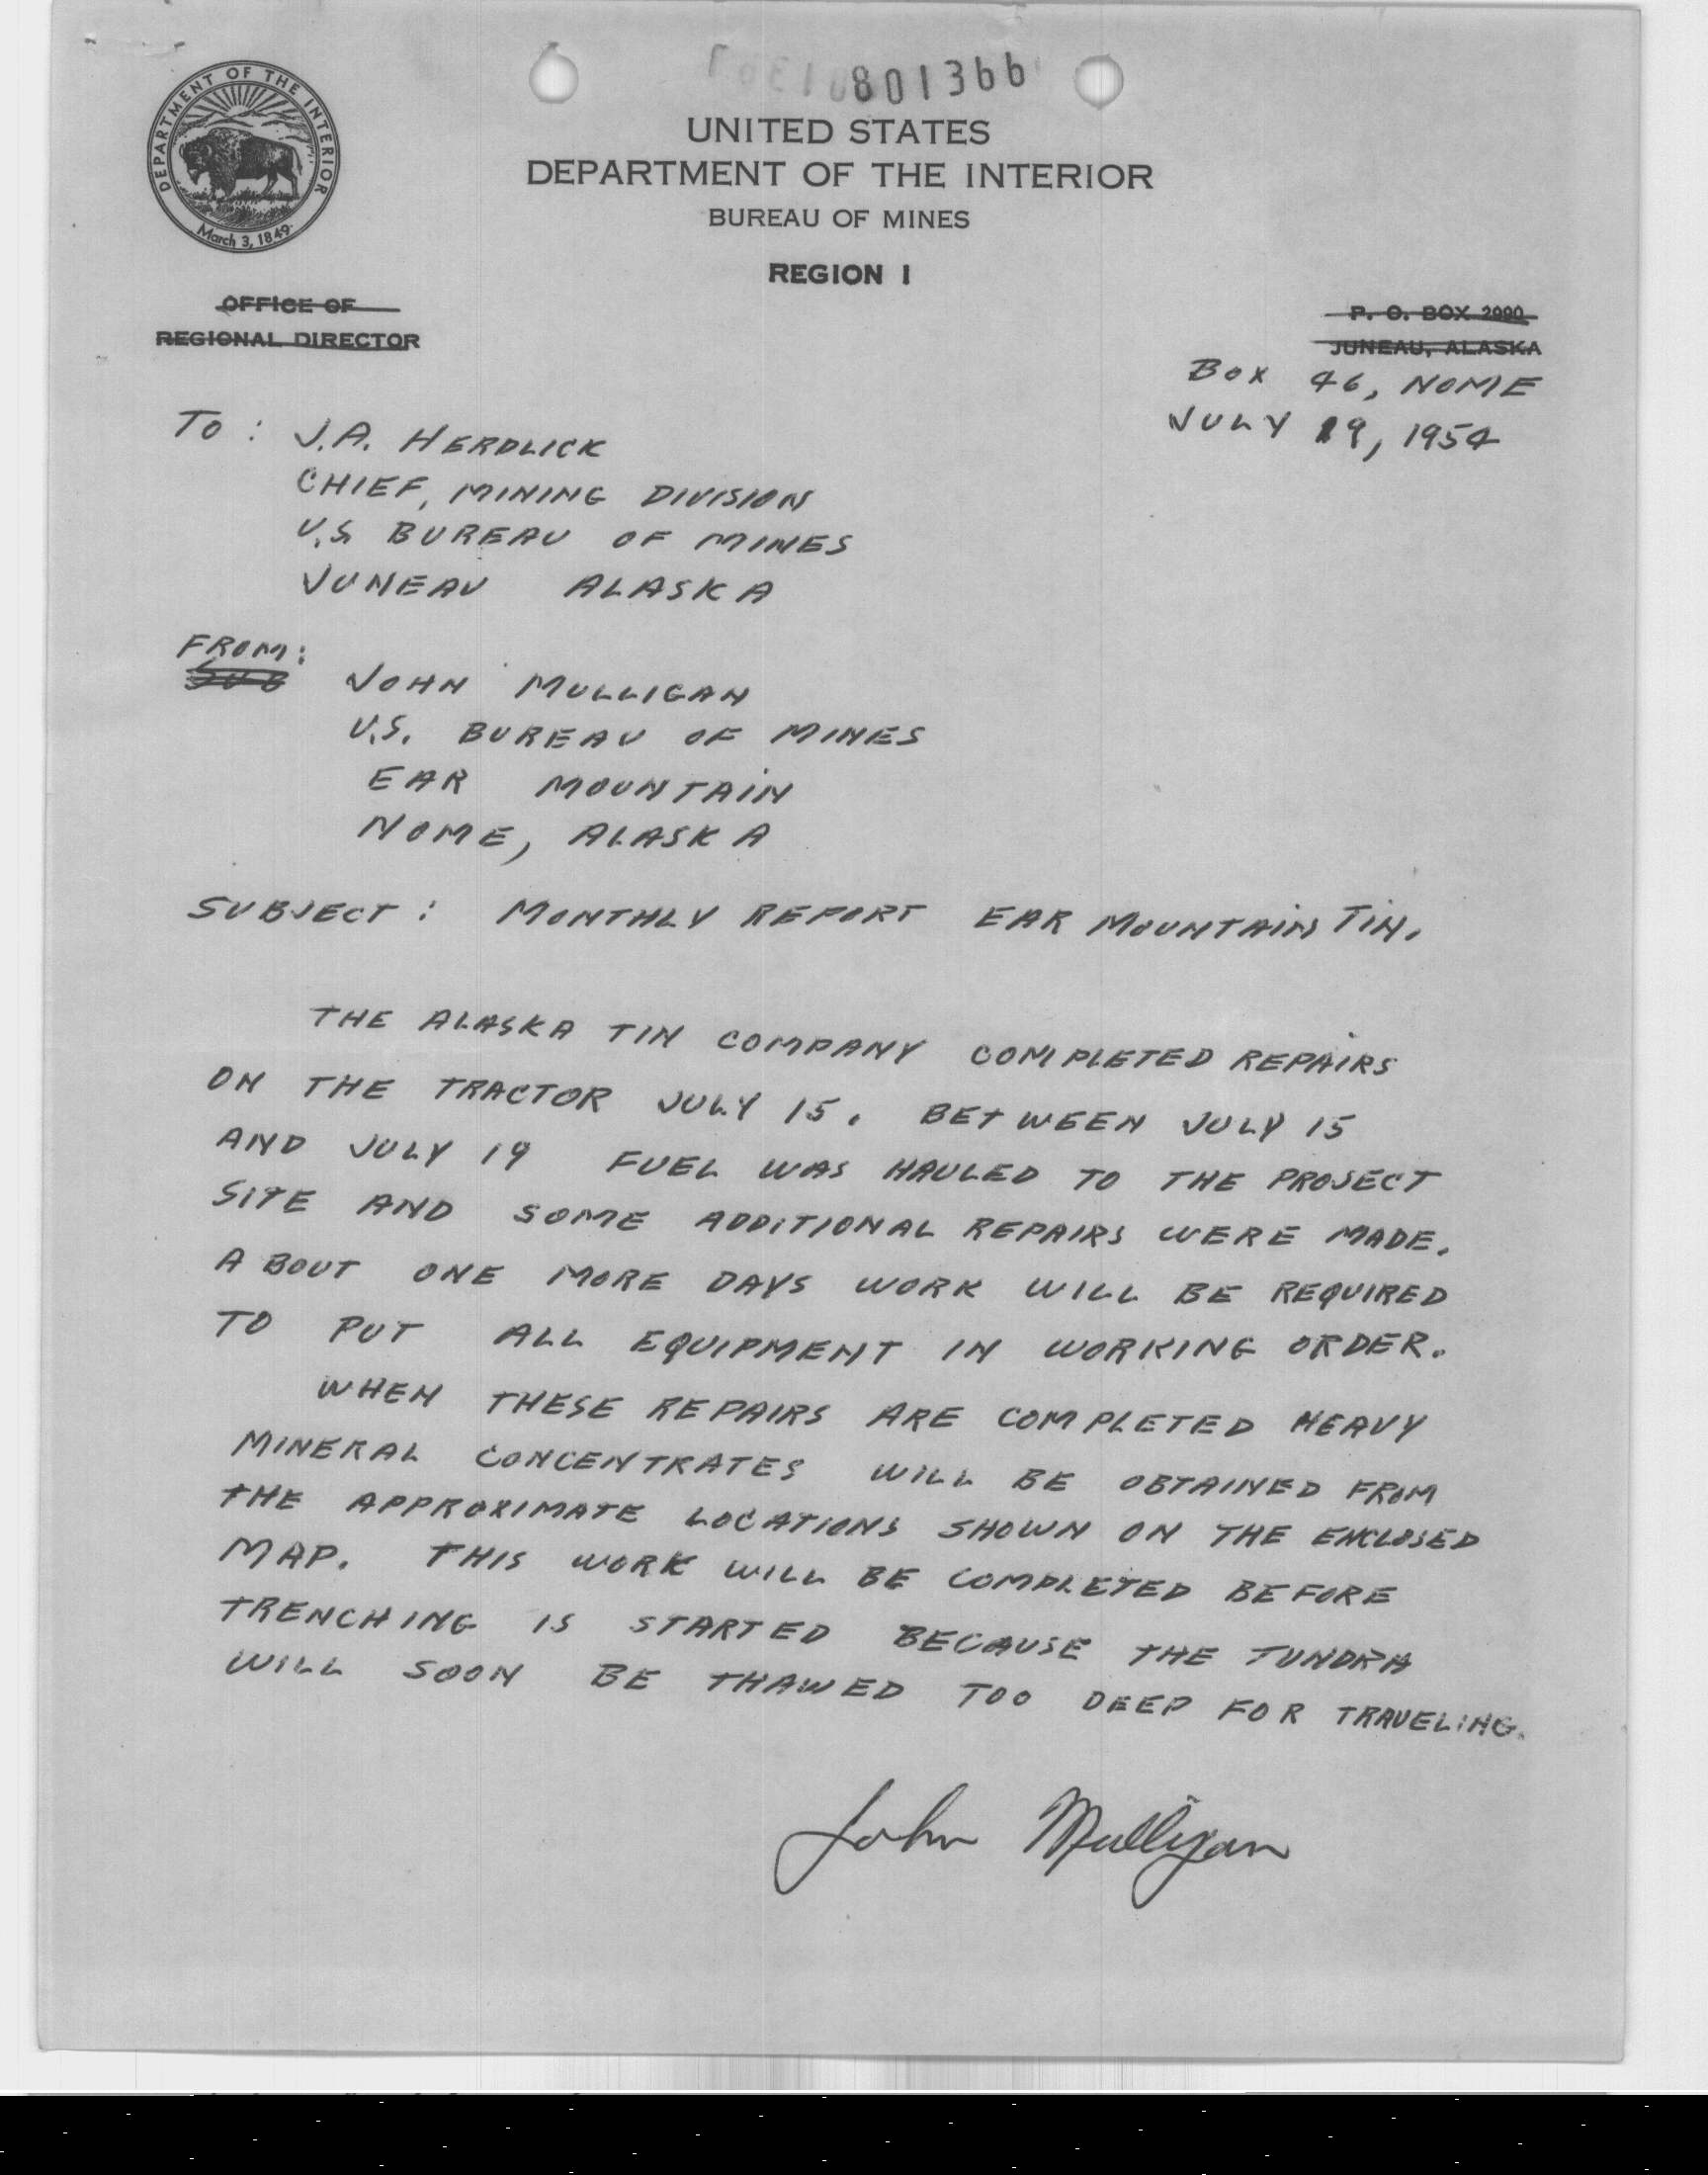 801366
DEPARTMENT OF THE INTERIOR
March 3, 1849
UNITED STATES
DEPARTMENT OF THE INTERIOR
BUREAU OF MINES
REGION I
OFFICE OF
REGIONAL DIRECTOR
P. O. BOX 2990
JUNEAU, ALASKA
BOX 46, NOME
JULY 19, 1954
TO: J.A. HERDLICK
CHIEF, MINING DIVISION
U.S. BUREAU OF MINES
JUNEAU ALASKA
FROM:
SUB JOHN MULLIGAN
U.S. BUREAU OF MINES
EAR MOUNTAIN
NOME, ALASKA
SUBJECT: MONTHLY REPORT EAR MOUNTAIN TIN.
THE ALASKA TIN COMPANY COMPLETED REPAIRS
ON THE TRACTOR JULY 15. BETWEEN JULY 15
AND JULY 19 FUEL WAS HAULED TO THE PROJECT
SITE AND SOME ADDITIONAL REPAIRS WERE MADE.
ABOUT ONE MORE DAYS WORK WILL BE REQUIRED
TO PUT ALL EQUIPMENT IN WORKING ORDER.
WHEN THESE REPAIRS ARE COMPLETED HEAVY
MINERAL CONCENTRATES WILL BE OBTAINED FROM
THE APPROXIMATE LOCATIONS SHOWN ON THE ENCLOSED
MAP. THIS WORK WILL BE COMPLETED BEFORE
TRENCHING IS STARTED BECAUSE THE TUNDRA
WILL SOON BE THAWED TOO DEEP FOR TRAVELING.
John Mulligan